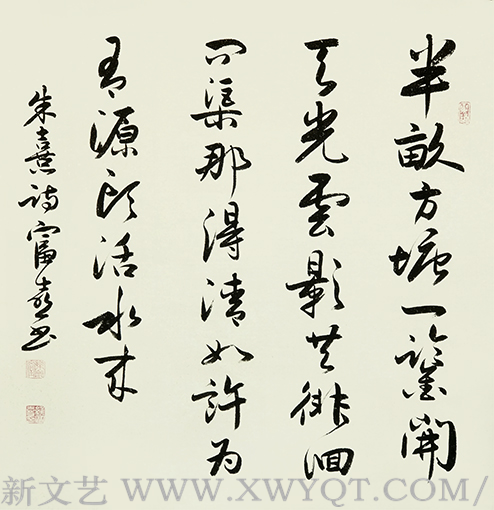 半畝方塘一鑒開
天光雲影共徘徊
問渠那得清如許為
有源頭活水來
朱熹詩富书
新文艺 WWW.XWYQT.COM/